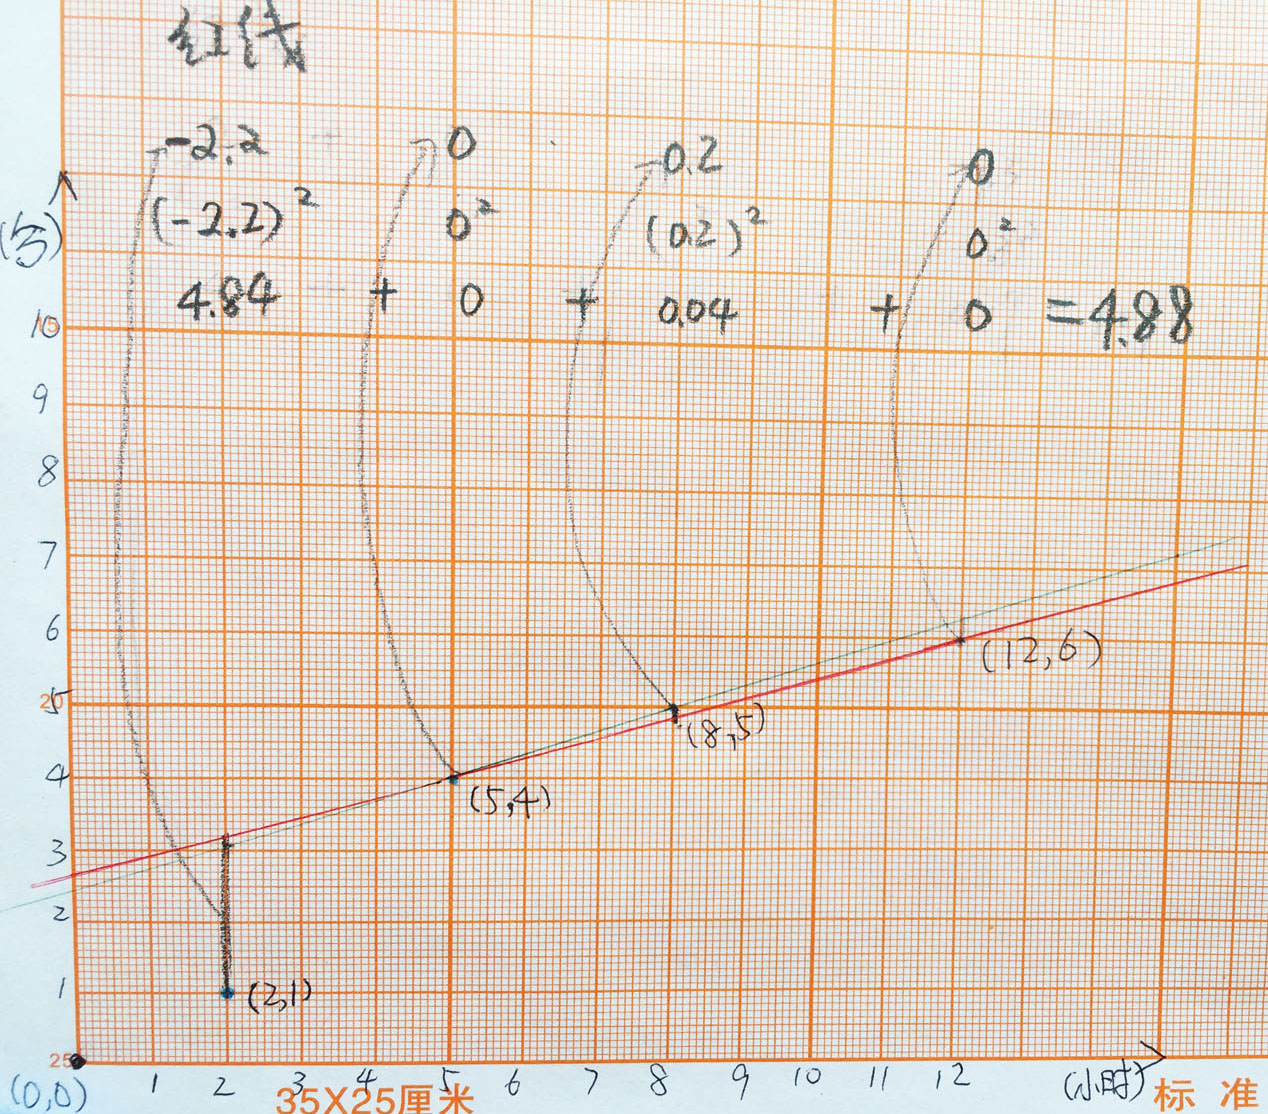 红线
-2.2 0 0.2 0
(-2.2)² 0² (0.2)² 0²
4.84 + 0 + 0.04 + 0 =4.88
(分)
10
9
8
7
6
(12,6)
5 20
(8,5)
4
(5,4)
3
2
1
(2,1)
25
(0,0) 1 2 3 4 5 6 7 8 9 10 11 12 (小时)
35X25厘米 标准